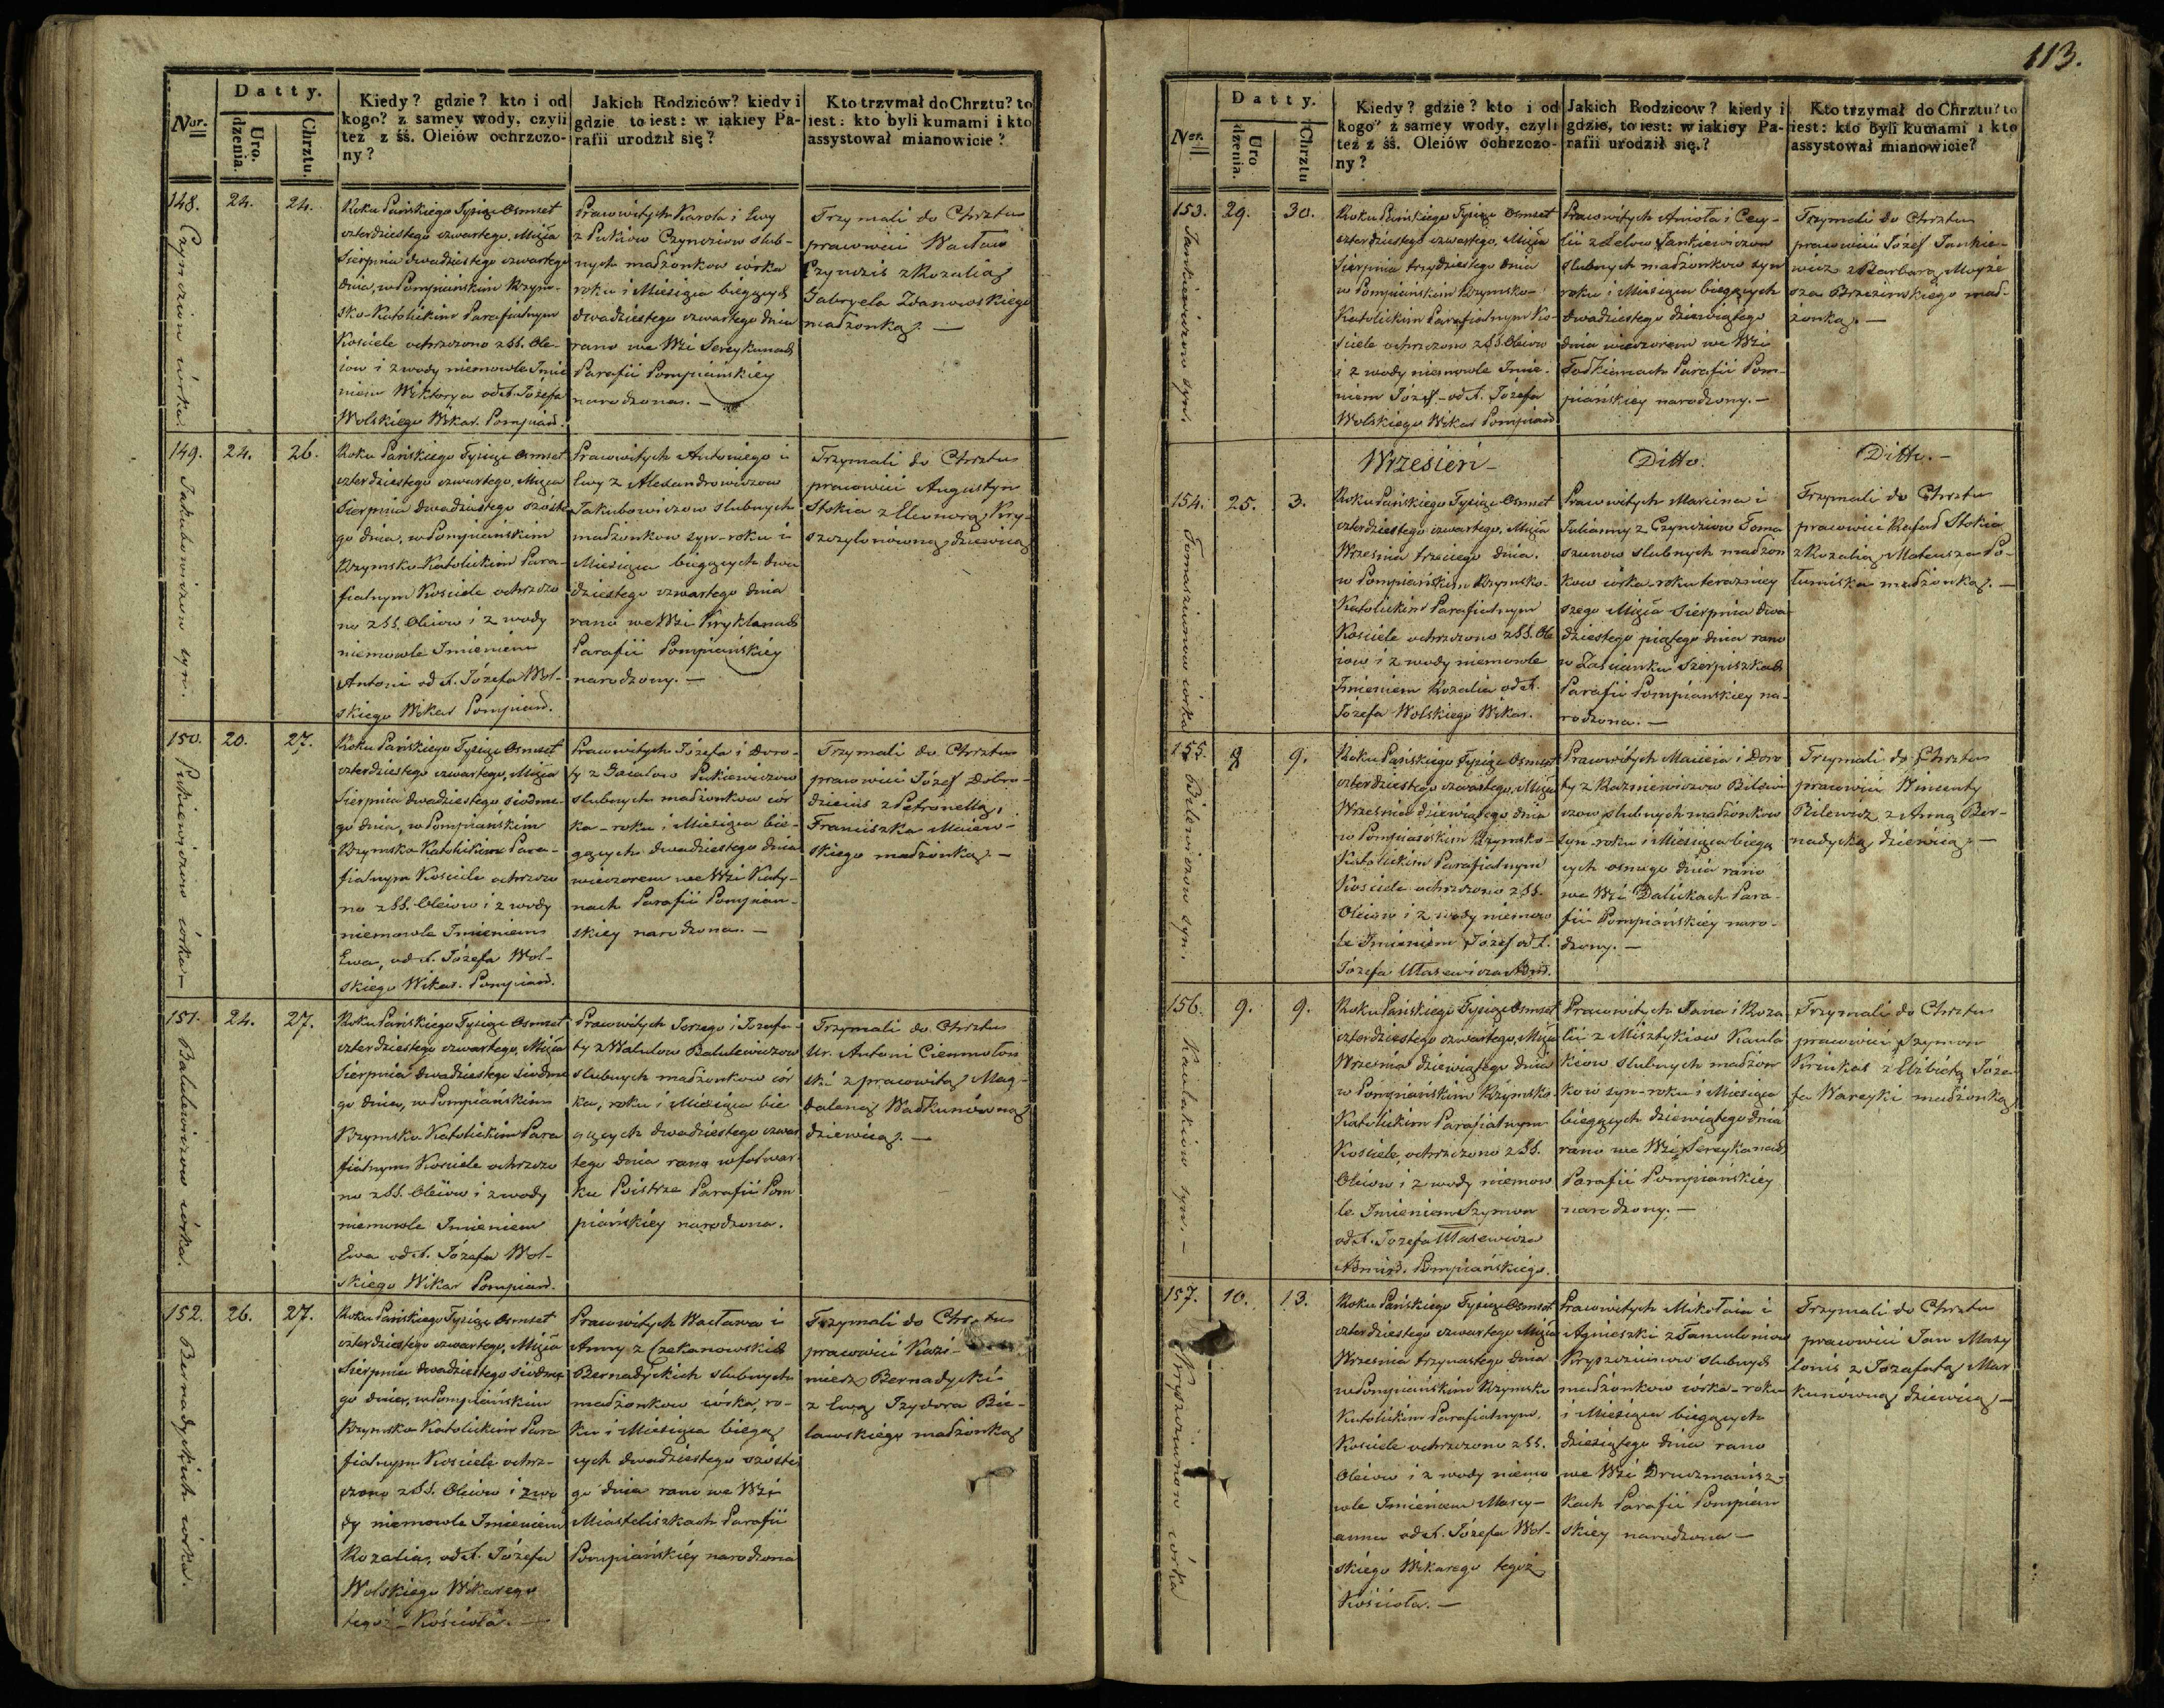 Datty.
Nor.
Uro.
dzenia.
Chrztu.
Kiedy? gdzie? kto i od
kogo? z samey wody, czyli
też z śś. Oleiów ochrzczo-
ny?
Jakich Rodziców? kiedy i
gdzie to iest: w iakiey Pa-
rafii urodził się?
Kto trzymał do Chrztu? to
iest: kto byli kumami i kto
assystował mianowicie?
148.
24.
24.
Czyndziow córka
Roku Pańskiego Tysiąc Osmset
czterdziestego czwartego, Mśca
Sierpnia dwadziestego czwartego
dnia, w Pompiańskim Rzym-
sko-Katolickim Parafialnym
Kościele ochrzczono z SS. Ole-
iow i z wody niemowle Imie
niem Wiktorya od X. Józefa
Wolskiego Wikar. Pompiań.
Pracowitych Karola i Ewy
z Pukiow Czyndziow slub-
nych małżonkow córka
roku i Miesiąca bieżących
dwadziestego czwartego dnia
rano we Wsi Sereykunach
Parafii Pompiańskiey
narodzona. —
Trzymali do Chrztu
pracowici Wacław
Czyndzis z Rozalią
Gabryela Zdanowskiego
małżonką. —
149.
24.
26.
Jakubowiczow syn.
Roku Pańskiego Tysiąc Osmset
czterdziestego czwartego, Mśca
Sierpnia dwadziestego szóste
go dnia, w Pompiańskim
Rzymsko-Katolickim Para-
fialnym Kościele ochrzczo
no z SS. Oleiow i z wody
niemowle Imieniem
Antoni od X. Józefa Wol-
skiego Wikar Pompiań.
Pracowitych Antoniego i
Ewy z Alexandrowiczow
Jakubowiczow slubnych
małżonkow syn-roku i
Miesiąca bieżących dwa
dziestego czwartego dnia
rano we Wsi Kryklanach
Parafii Pompiańskiey
narodzony. —
Trzymali do Chrztu
pracowici Augustyn
Stokia z Eleonorą Kry-
szczylonowną dziewicą
150.
20.
27.
Pukiewiczow córka —
Roku Pańskiego Tysiąc Osmset
czterdziestego czwartego, Mśca
Sierpnia dwadziestego siodme-
go dnia, w Pompiańskim
Rzymsko Katolickim Para-
fialnym Kościele ochrzczo
no z SS. Oleiow i z wody
niemowle Imieniem
Ewa, od X. Józefa Wol-
skiego Wikar. Pompiań.
Pracowitych Józefa i Doro-
ty z Pukiewiczow
slubnych małżonkow cór
ka - roku i Miesiąca bie-
żących dwadziestego dnia
wieczorem we Wsi Koty-
nach Parafii Pompiań-
skiey narodzona. —
Trzymali do Chrztu
pracowici Józef Dobro-
dzieius z Petronellą,
Franciszka Maiew-
skiego małżonką. —
151.
24.
27.
Balulewiczow córka.
Roku Pańskiego Tysiąc Osmset
czterdziestego czwartego, Mśca
Sierpnia dwadziestego siodme
go dnia, w Pompiańskim
Rzymsko Katolickim Para
fialnym Kościele ochrzczo
no z SS. Oleiow i z wody
niemowle Imieniem
Ewa od X. Józefa Wol-
skiego Wikar Pompiań.
Pracowitych Jerzego i Jozefa-
ty z Walulow Balulewiczow
slubnych małżonkow cór
ka, roku i Miesiąca bie
żących dwadziestego czwar
tego dnia rano w folwar
ku Poistrze Parafii Pom
piańskiey narodzona.
Trzymali do Chrztu
Ur. Antoni Ciemnołoń
ski z pracowitą Mag-
daleną Wadkunowną
dziewicą. —
152.
26.
27.
Bernadyckich córka.
Roku Pańskiego Tysiąc Osmset
czterdziestego czwartego, Mśca
Sierpnia dwadziestego siodme
go dnia, w Pompiańskim
Rzymsko Katolickim Para
fialnym Kościele ochrz-
czono z SS. Oleiow i z wo
dy niemowle Imieniem
Rozalia, od X. Józefa
Wolskiego Wikarego
tegoż Kościoła. —
Pracowitych Wacława i
Anny z Czekanowskich
Bernadyckich slubnych
małżonkow córka, ro-
ku i Miesiąca bieżą
cych dwadziestego szóste
go dnia rano we Wsi
Miasteliszkach Parafii
Pompiańskiey narodzona
Trzymali do Chrztu
pracowici Kazi-
mierz Bernadycki
z Ewą Izydora Bie-
lawskiego małżonką
113.
Datty.
Nor.
Uro
dzenia.
Chrztu
Kiedy? gdzie? kto i od
kogo? z samey wody, czyli
też z śś. Oleiów ochrzczo-
ny?
Jakich Rodzicow? kiedy i
gdzie, to iest: w iakiey Pa-
rafii urodził się.?
Kto trzymał do Chrztu? to
iest: kto byli kumami i kto
assystował mianowicie?
153.
29.
30.
Jankiewiczow syn.
Roku Pańskiego Tysiąc Osmset
czterdziestego czwartego, Mśca
Sierpnia trzydziestego dnia
w Pompiańskim Rzymsko-
Katolickim Parafialnym Ko-
ściele ochrzczono z SS. Oleiow
i z wody niemowle Imie-
niem Józef - od X. Józefa
Wolskiego Wikar Pompiań
Pracowitych Anioła i Cecy-
lii z Lelow Jankiewiczow
slubnych małżonkow syn
roku i Miesiąca bieżących
dwadziestego dziewiątego
dnia wieczorem we Wsi
Fodkiemach Parafii Pom-
piańskiey narodzony. —
Trzymali do Chrztu
pracowici Józef Jankie-
wicz z Barbarą Moyże
sza Brzezinskiego mał-
żonką. —
Wrzesień -
Ditto.
Ditto. -
154.
25.
3.
Tomaszunow córka
Roku Pańskiego Tysiąc Osmset
czterdziestego czwartego, Mśca
Wrzesnia trzeciego dnia.
w Pompiańskim Rzymsko-
Katolickim Parafialnym
Kościele ochrzczono z SS. Ole
iow i z wody niemowle
Imieniem Rozalia od X.
Józefa Wolskiego Wikar.
Pracowitych Marcina i
Julianny z Czyndziow Toma
szunow slubnych małżon
kow córka-roku teraźniey
szego Mśca Sierpnia dwa
dziestego piątego dnia rano
w Zaścianku Szerpiszkach
Parafii Pompianskiey na-
rodzona. —
Trzymali do Chrztu
pracowici Rafał Stokia
z Rozalią Mateusza Po-
łumiska małżonką. —
155.
8
9.
Bilewiczow syn.
Roku Pańskiego Tysiąc Osmset
czterdziestego czwartego, Mśca
Wrzesnia dziewiątego dnia
w Pompiańskim Rzymsko-
Katolickim Parafialnym
Kościele ochrzczono z SS.
Oleiow i z wody niemow
le Imieniem Józef od X.
Józefa Ułasewicza Admi.
Pracowitych Macieia i Doro
ty z Kazmiewiczow Bilewi
czow, slubnych małżonkow
syn roku i Miesiąca bieżą
cych osmego dnia rano
we Wsi Balickach Para-
fii Pompiańskiey naro-
dzony. —
Trzymali do Chrztu
pracowici Wincenty
Bilewicz z Anną Ber-
nadycką dziewicą. —
156.
9.
9.
Kaulakiow syn. -
Roku Pańskiego Tysiąc Osmset
czterdziestego czwartego, Mśca
Wrzesnia dziewiątego dnia
w Pompiańskim Rzymsko
Katolickim Parafialnym
Kościele, ochrzczono z SS.
Oleiow i z wody niemow
le Imieniem Szymon
od X. Józefa Ułasewicza
Admin. Pompiańskiego.
Pracowitych Jana i Roza
lii z Misztykiow Kaula
kiow slubnych małżon
kow syn-roku i Miesiąca
bieżących dziewiątego dnia
rano we Wsi Sereykanach
Parafii Pompiańskiey
narodzony. —
Trzymali do Chrztu
pracowici Szymon
Kirinkas z Elżbietą Józe
fa Wareyki małżonką
157.
10.
13.
Kryszciunow córka
Roku Pańskiego Tysiąc Osmset
czterdziestego czwartego Mśca
Wrzesnia trzynastego dnia
w Pompiańskim Rzymsko
Katolickim Parafialnym
Kościele ochrzczono z SS.
Oleiow i z wody niemo
wle Imieniem Mary-
anna od X. Józefa Wol-
skiego Wikarego tegoż
Kościoła. —
Pracowitych Mikołaia i
Agnieszki z Tamuloniow
Kryszciunow slubnych
małżonkow córka-roku
i Miesiąca bieżących
dziesiątego dnia rano
we Wsi Druczmanisz-
kach Parafii Pompiań
skiey narodzona —
Trzymali do Chrztu
pracowici Jan Mazy
lonis z Jozafatą Mar
kunowną dziewicą —